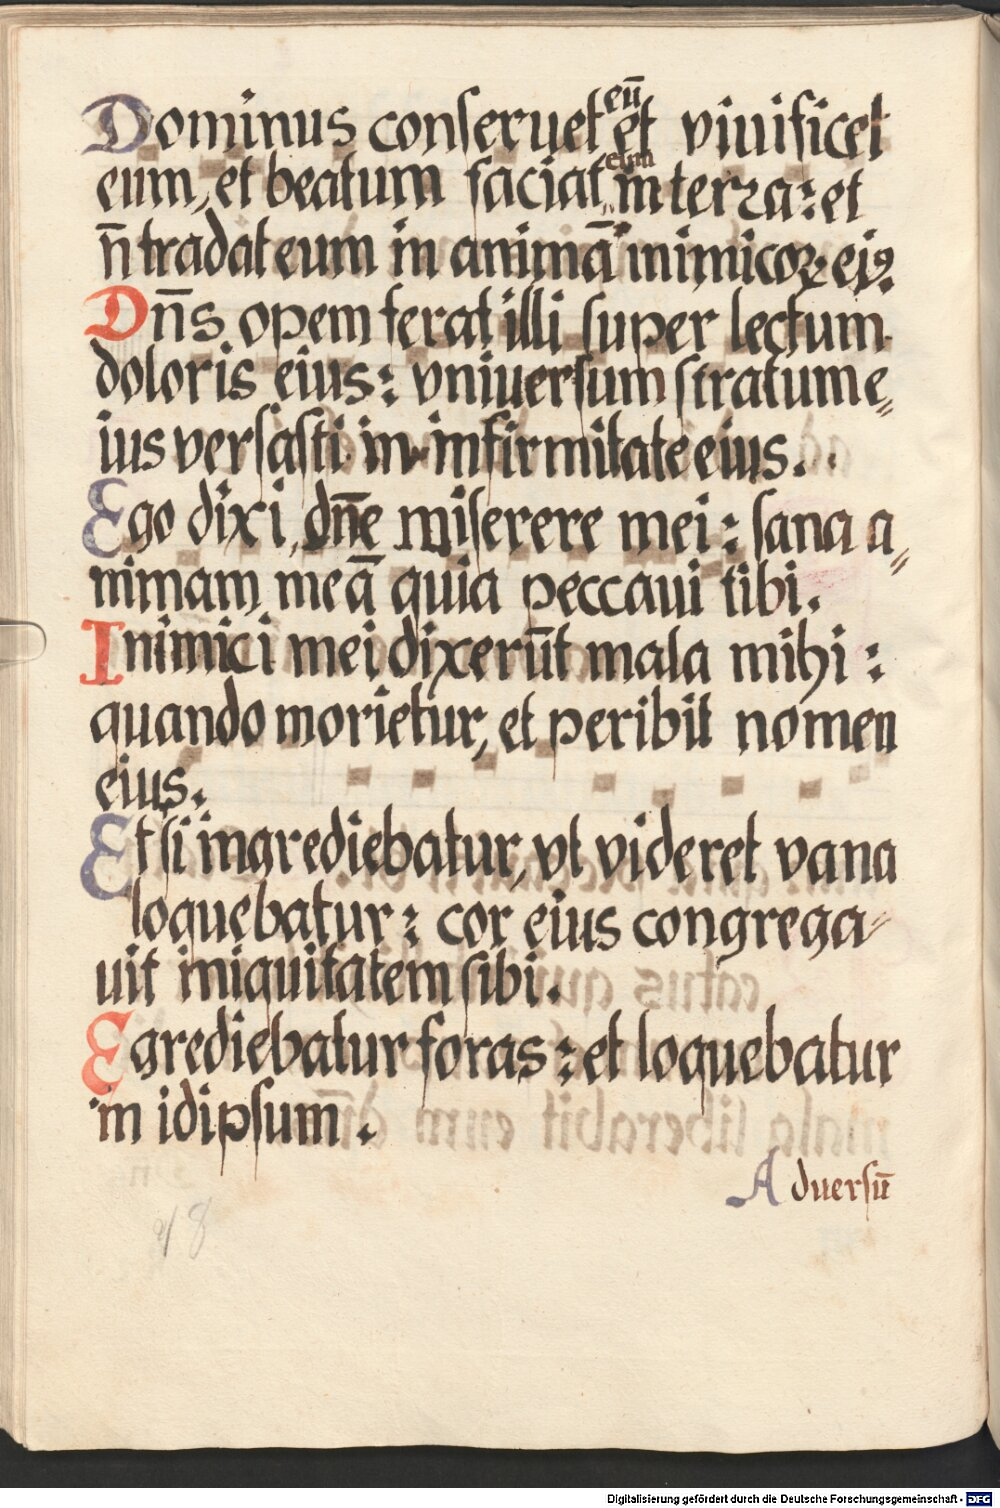 Dominus conseruet eū et viuificet
eum, et beatum faciat eum in terra: et
n̄ tradat eum in animā inimicoꝝ eiꝰ.
Dn̄s opem ferat illi super lectum
doloris eius: vniuersum stratum e⸗
ius versasti in infirmitate eius.
Ego dixi, dn̄e miserere mei: sana a⸗
nimam meā quia peccaui tibi.
Inimici mei dixerūt mala mihi:
quando morietur, et peribit nomen
eius.
Et si ingrediebatur, vt videret vana
loquebatur: cor eius congrega⸗
uit iniquitatem sibi.
Egrediebatur foras: et loquebatur
in idipsum.
Aduersū
48
Digitalisierung gefördert durch die Deutsche Forschungsgemeinschaft - DFG